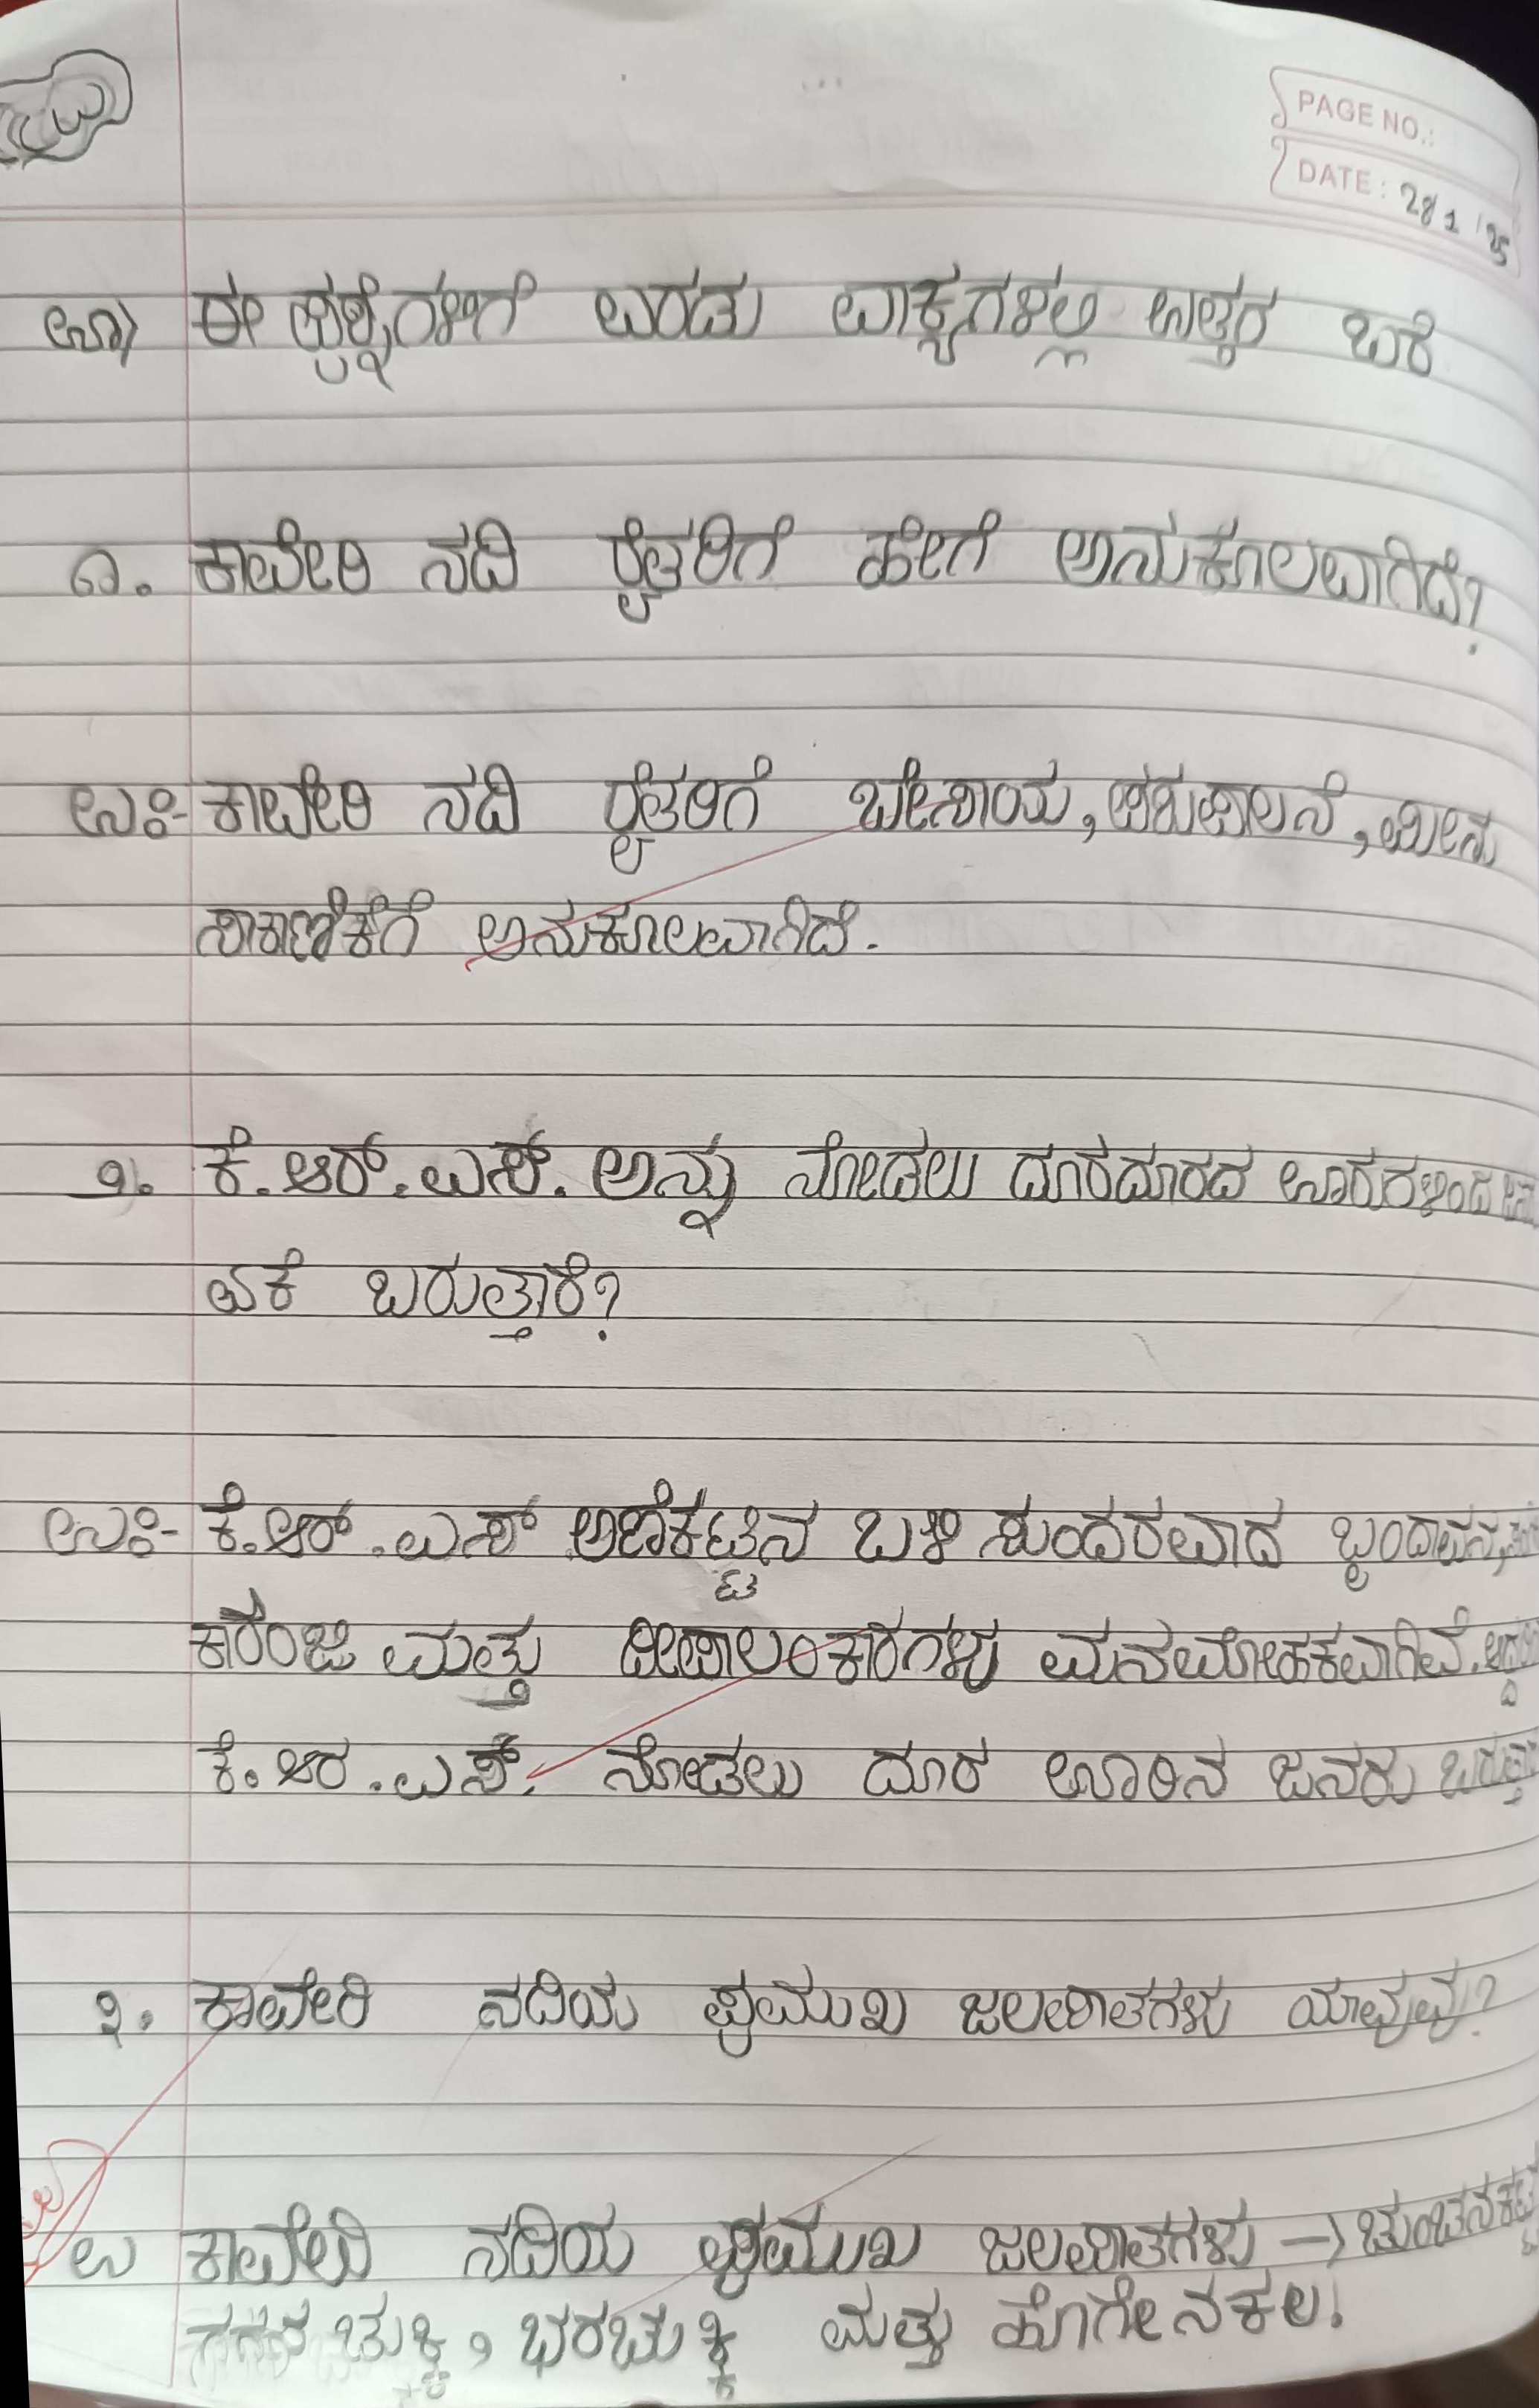 PAGE NO.:
DATE: 28/1/25
ಊ) ಈ ಪ್ರಶ್ನೆಗಳಿಗೆ ಎರಡು ವಾಕ್ಯಗಳಲ್ಲಿ ಉತ್ತರ ಬರೆ
೧. ಕಾವೇರಿ ನದಿ ರೈತರಿಗೆ ಹೇಗೆ ಅನುಕೂಲವಾಗಿದೆ?
ಉ:- ಕಾವೇರಿ ನದಿ ರೈತರಿಗೆ ಬೇಸಾಯ, ಪಶುಪಾಲನೆ, ಮೀನು
ಸಾಕಾಣಿಕೆಗೆ ಅನುಕೂಲವಾಗಿದೆ.
೨. ಕೆ.ಆರ್.ಎಸ್. ಅನ್ನು ನೋಡಲು ದೂರದೂರದ ಊರುಗಳಿಂದ
ಏಕೆ ಬರುತ್ತಾರೆ?
ಉ:- ಕೆ.ಆರ್.ಎಸ್ ಅಣೆಕಟ್ಟಿನ ಬಳಿ ಸುಂದರವಾದ ಬೃಂದಾವನ,
ಕಾರಂಜಿ ಮತ್ತು ದೀಪಾಲಂಕಾರಗಳು ಮನಮೋಹಕವಾಗಿವೆ.
ಕೆ.ಆರ.ಎಸ್. ನೋಡಲು ದೂರ ಊರಿನ ಜನರು
೩. ಕಾವೇರಿ ನದಿಯ ಪ್ರಮುಖ ಜಲಪಾತಗಳು ಯಾವುವು?
ಉ ಕಾವೇರಿ ನದಿಯ ಪ್ರಮುಖ ಜಲಪಾತಗಳು → ಚುಂಚನಕಟ್ಟೆ
ಗಗನ ಚುಕ್ಕಿ, ಭರಚುಕ್ಕಿ ಮತ್ತು ಹೊಗೇನಕಲ.